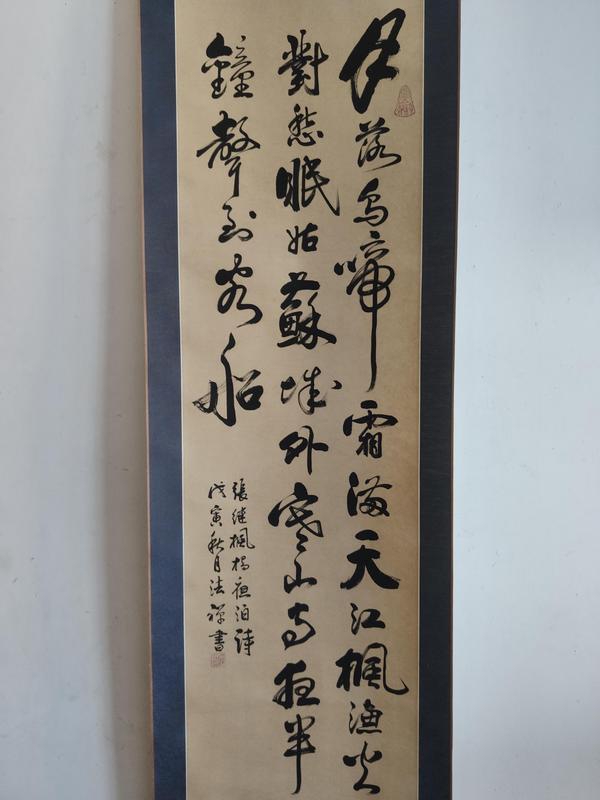 月落烏啼霜滿天江楓漁火
對愁眠姑蘇城外寒山寺夜半
鐘聲到客船
張继楓橋夜泊詩
戊寅秋月法禪書